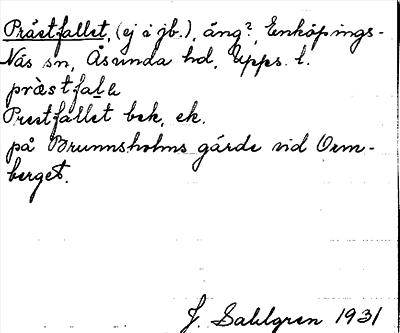 Prästfallet, (ej i jb.), äng?, Enköpings-
Näs sn, Åsunda hd, Upps. l.
præ̀stfalə
Prestfallet bek, ek.
på Brunnsholms gärde vid Orm-
berget.
J. Sahlgren 1931